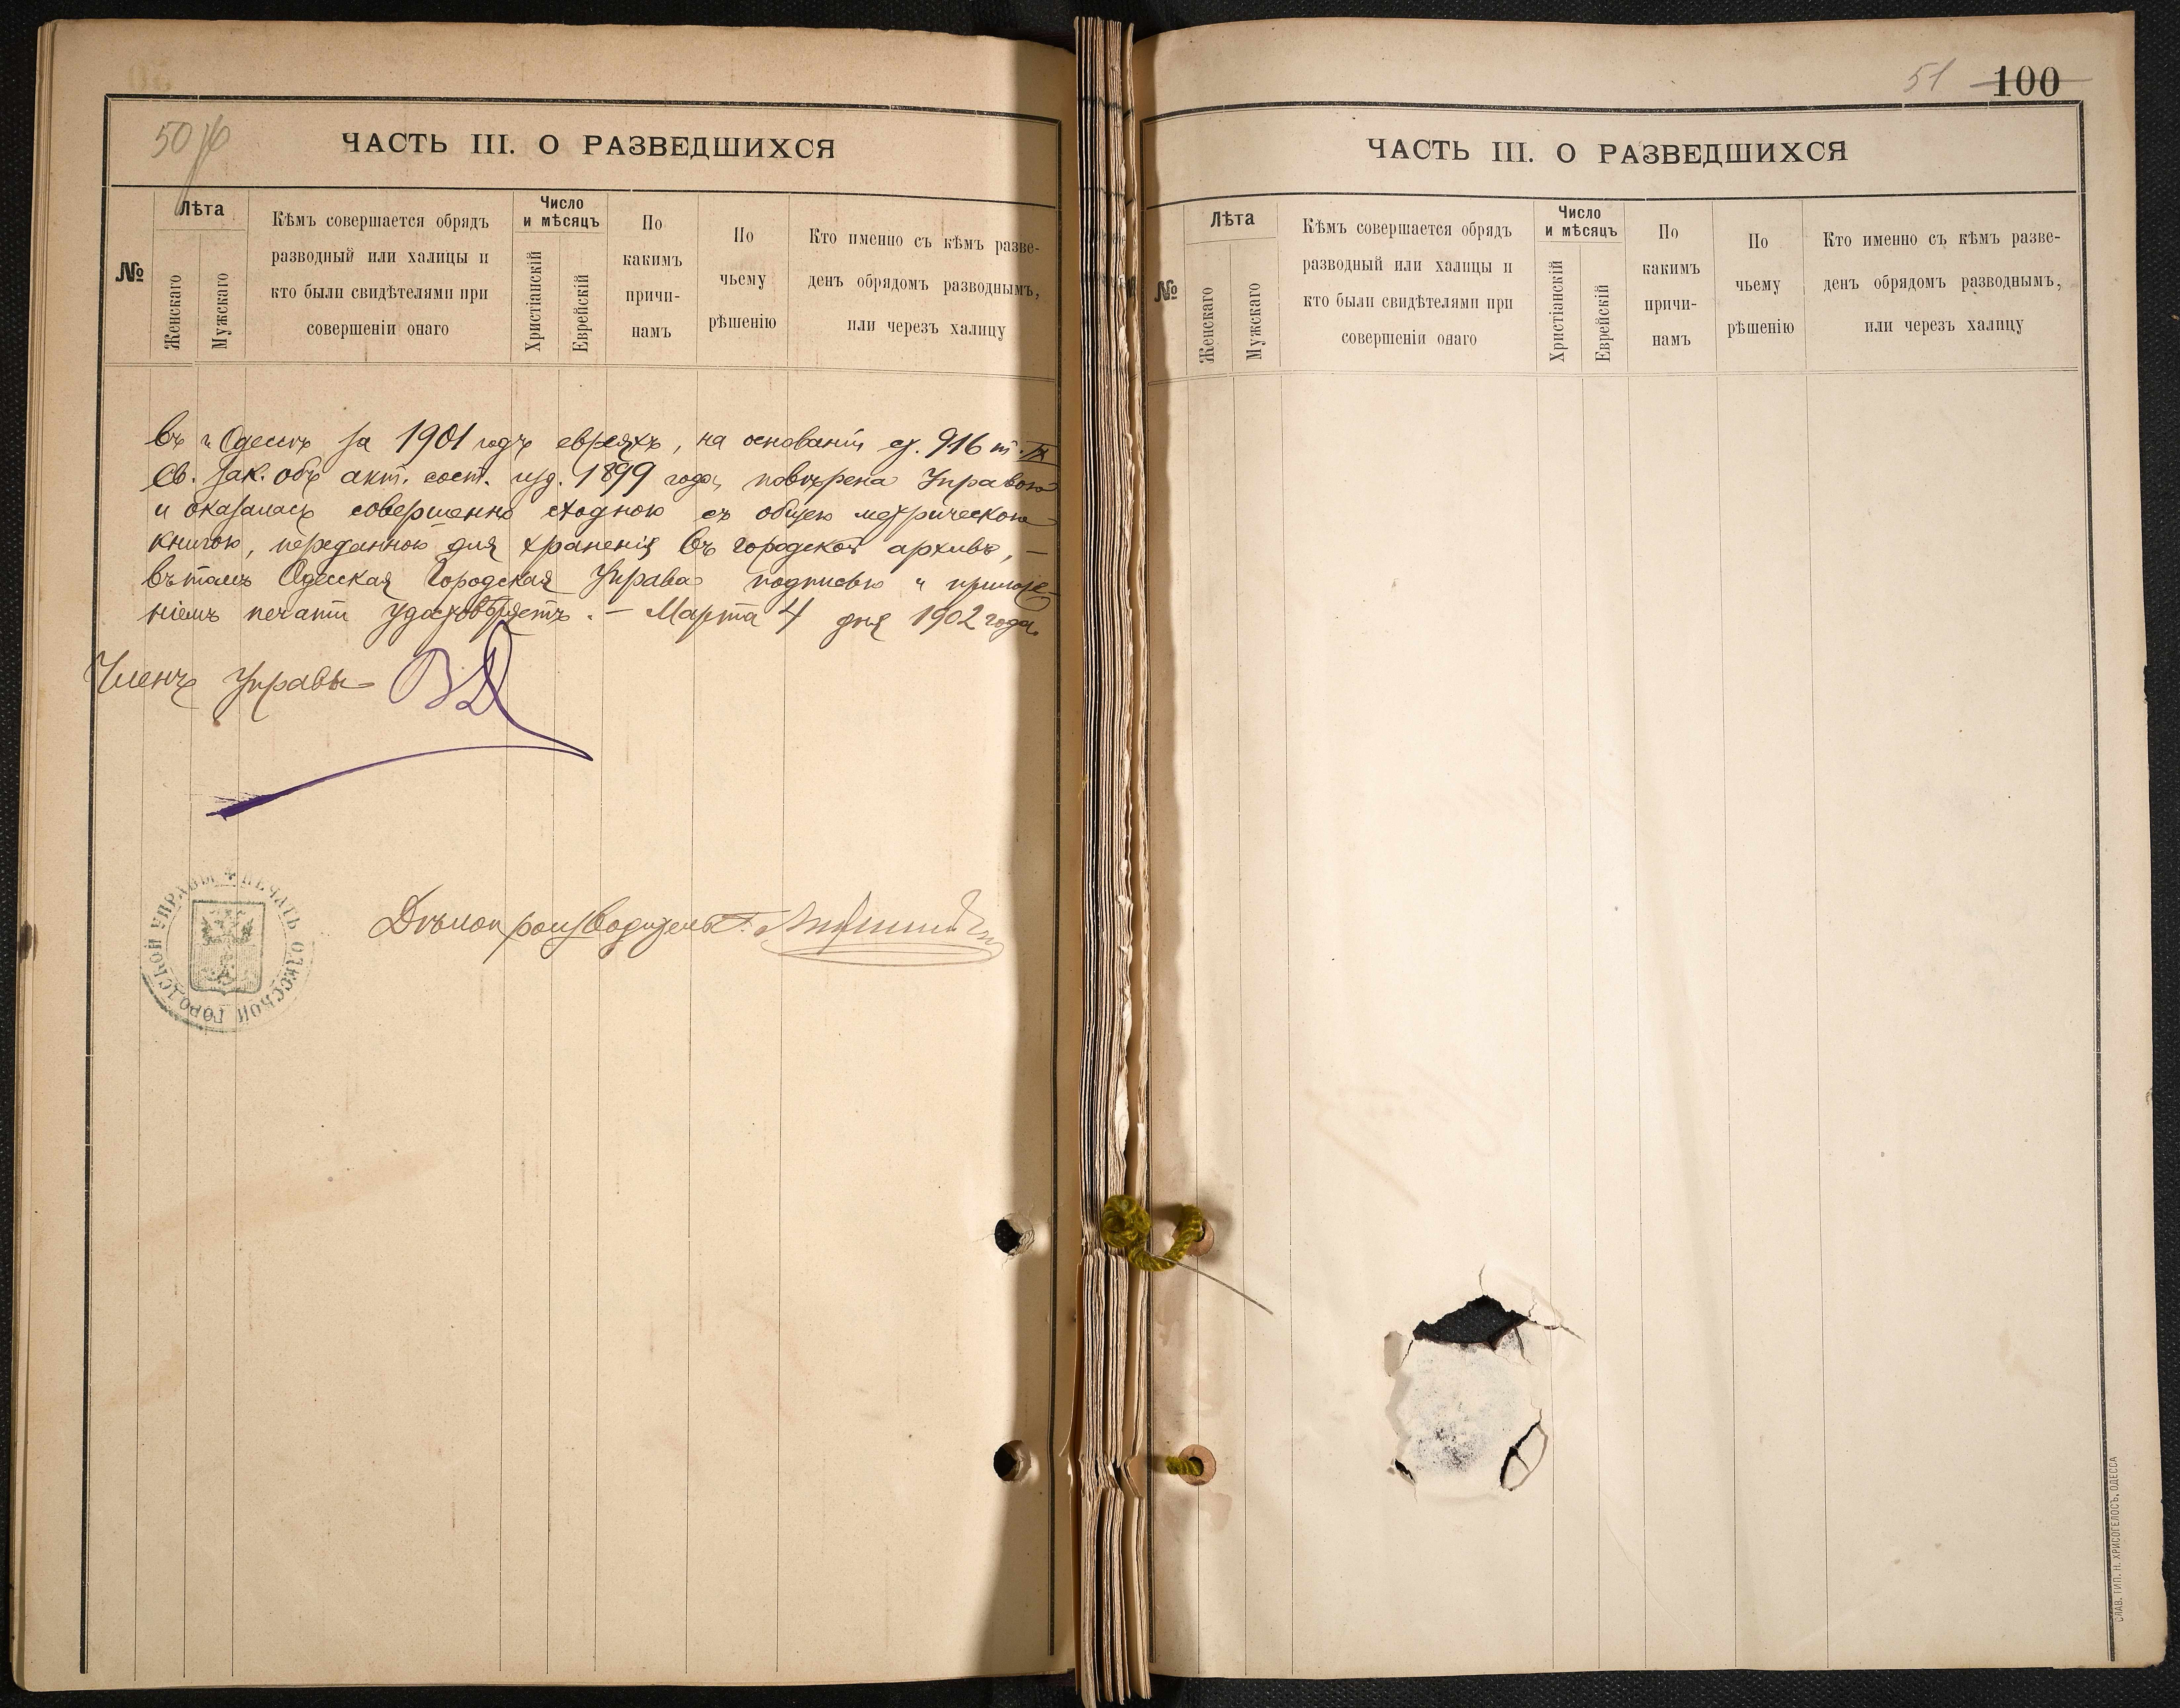 50 об
ЧАСТЬ III. О РАЗВЕДШИХСЯ
№
Лѣта
Женскаго
Мужскаго
Кѣмъ совершается обрядъ
разводный или халицы и
кто были свидѣтелями при
совершеніи онаго
Число
и мѣсяцъ
Христіанскій
Еврейскій
По
какимъ
причи-
намъ
По
чьему
рѣшенію
Кто именно съ кѣмъ разве-
денъ обрядомъ разводнымъ,
или черезъ халицу
въ г. Одессѣ за 1901 годъ евреяхъ, на основаніи ст. 916 т. IX
Св. Зак. объ акт. сост. изд. 1899 года, повѣрена Управою
и оказалась совершенно сходною съ общею метрическою
книгою, переданною для храненія въ городской архивъ, –
въ томъ Одесская Городская Управа подписью и приложе-
ніемъ печати удостовѣряетъ. – Марта 4 дня 1902 года.
Членъ Управы
Дѣлопроизводитель
ПЕЧАТЬ ОДЕССКОЙ ГОРОДСКОЙ УПРАВЫ
51 100
ЧАСТЬ III. О РАЗВЕДШИХСЯ
№
Лѣта
Женскаго
Мужскаго
Кѣмъ совершается обрядъ
разводный или халицы и
кто были свидѣтелями при
совершеніи онаго
Число
и мѣсяцъ
Христіанскій
Еврейскій
По
какимъ
причи-
намъ
По
чьему
рѣшенію
Кто именно съ кѣмъ разве-
денъ обрядомъ разводнымъ,
или черезъ халицу
СЛАВ. ТИП. Н. ХРИСОГЕЛОСЪ, ОДЕССА